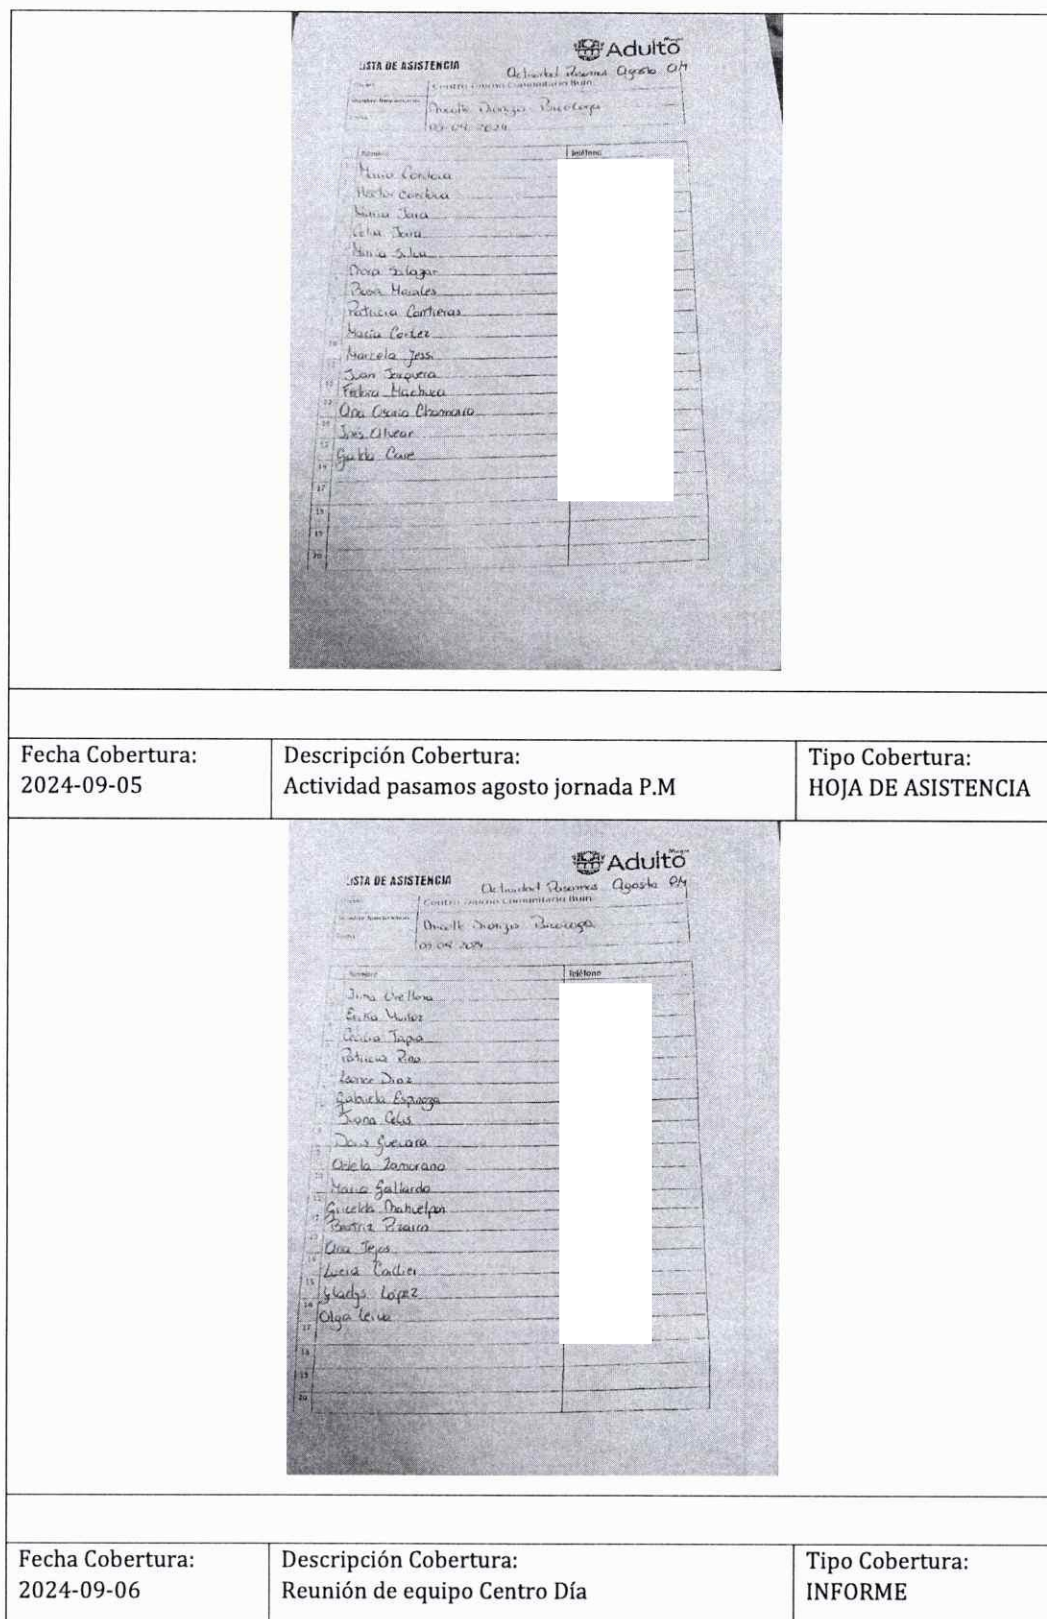 Mayor
Adulto
LISTA DE ASISTENCIA
Actividad Pasamos Agosto
Centro Diurno Comunitario Buin
Psicologa
Nombre
Teléfono
Maria Cordova
Hector Cordova
Maria Jara
Celia Jara
Maria Silva
Dora Salazar
Rosa Morales
Patricia Contreras
Maria Cortez
Marcela Jessi
Juan Jorquera
Fedora Machuca
Ana Osorio Chamorro
Inés Alvear
17
18
19
20
Fecha Cobertura:
2024-09-05
Descripción Cobertura:
Actividad pasamos agosto jornada P.M
Tipo Cobertura:
HOJA DE ASISTENCIA
Mayor
Adulto
LISTA DE ASISTENCIA
Actividad Pasamos Agosto PM
Centro Diurno Comunitario Buin
Psicologa
Nombre
Teléfono
Irma Orellana
Erika Muñoz
Cecilia Tapia
Patricia Pino
Leonor Diaz
Gabriela Espinoza
Juana Celis
Doris Guevara
Odela Zamorano
Maria Gallardo
Beatriz Pizarro
Ana Tejos
Gladys López
Olga Leiva
17
18
19
20
Fecha Cobertura:
2024-09-06
Descripción Cobertura:
Reunión de equipo Centro Día
Tipo Cobertura:
INFORME